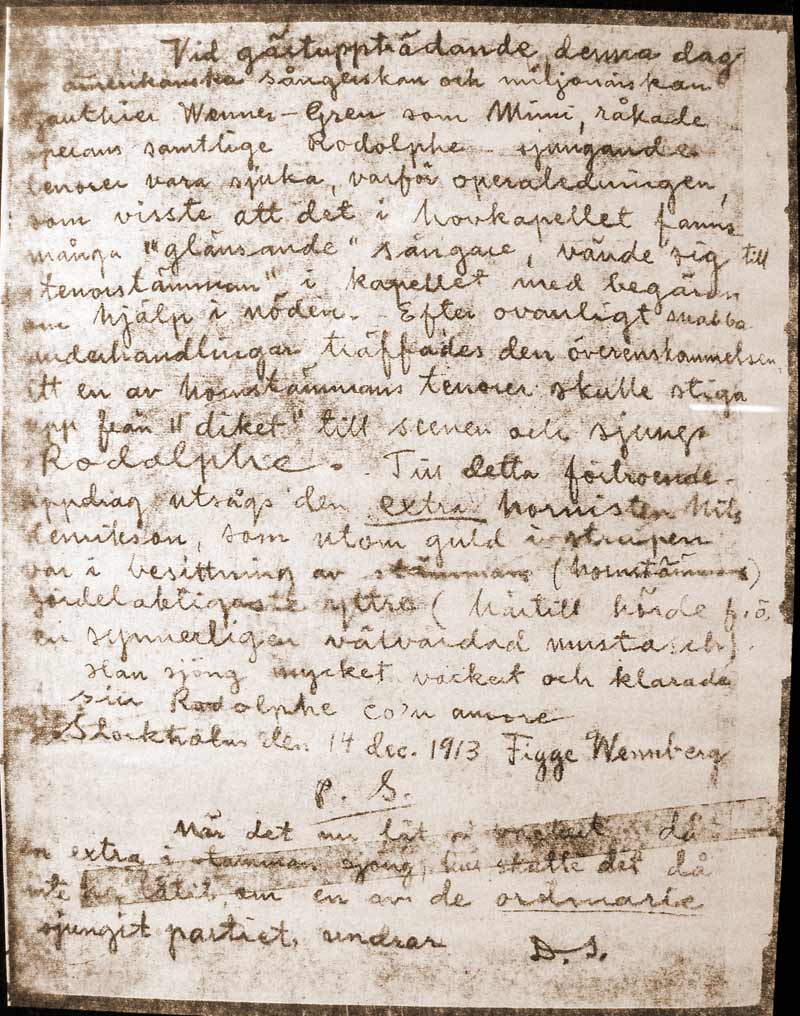 Vid gästuppträdande denna dag
amerikanska sångerskan och miljonärskan
Gauthier Wenner-Gren som Mimi, råkade
operans samtlige Rodolphe - sjungande
tenorer vara sjuka, varför operaledningen,
som visste att det i hovkapellet fanns
många "glänsande" sångare, vände sig till
"tenorstämman" i kapellet med begäran
om hjälp i nöden. - Efter ovanligt snabba
underhandlingar träffades den överenskommelsen,
att en av hornstämmans tenorer skulle stiga
upp från "diket" till scenen och sjunga
Rodolphe. - Till detta förtroende-
uppdrag utsågs den extra hornisten Nils
Henrikson, som utom guld i strupen
var i besittning av stämmans (hornstämmans)
fördelaktigaste yttre (härtill hörde f.ö.
en synnerligen välvårdad mustasch).
Han sjöng mycket vackert och klarade
sin Rodolphe co'n amore
Stockholm den 14 dec. 1913 Figge Wennberg
P. S.
När det nu lät så vackert då
en extra i stämman sjöng, hur skulle det då
inte ha låtit, om en av de ordinarie
sjungit partiet, undrar D. S.